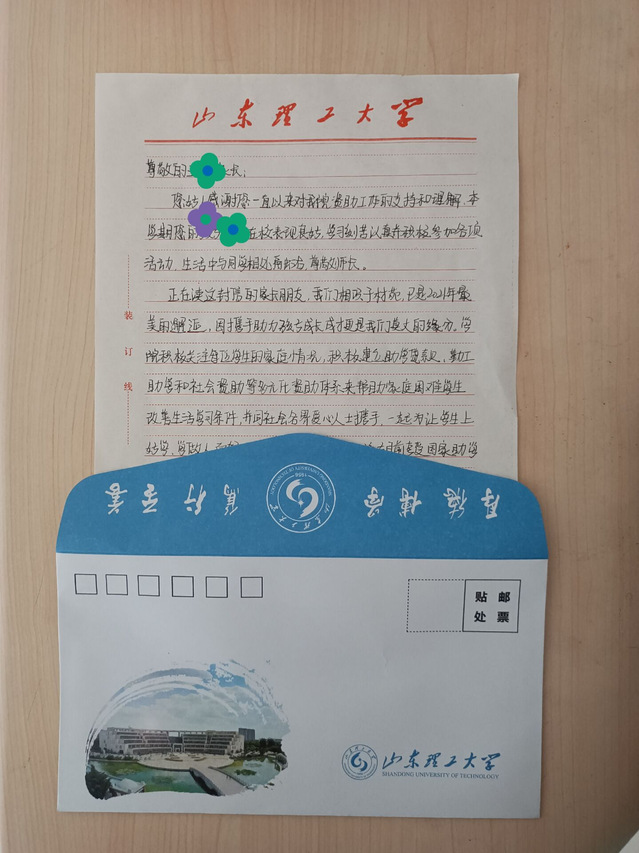 山东理工大学
尊敬的 家长:
您好!感谢您一直以来对我院资助工作的支持和理解.本
学期您的 在校表现良好,学习刻苦认真并积极参加各项
活动,生活中与同学相处融洽,尊敬师长。
正在读这封信的家长朋友,我们相 于 ,已是2021年最
美的邂逅,因携手助力孩子成长成才更是我们莫大的缘分。学
院积极关注每位学生的家庭情况,积极建立助学贷款,勤工
助学和社会资助等多元化资助体系来帮助家庭困难学生
改善生活学习条件,并同社会各界爱心人士携手,一起为让学生上
好学, 国家助学
装
订
线
厚德 博学 笃行 至善
山东理工大学
SHANDONG UNIVERSITY OF TECHNOLOGY
1956
贴 邮
处 票
山东理工大学
SHANDONG UNIVERSITY OF TECHNOLOGY